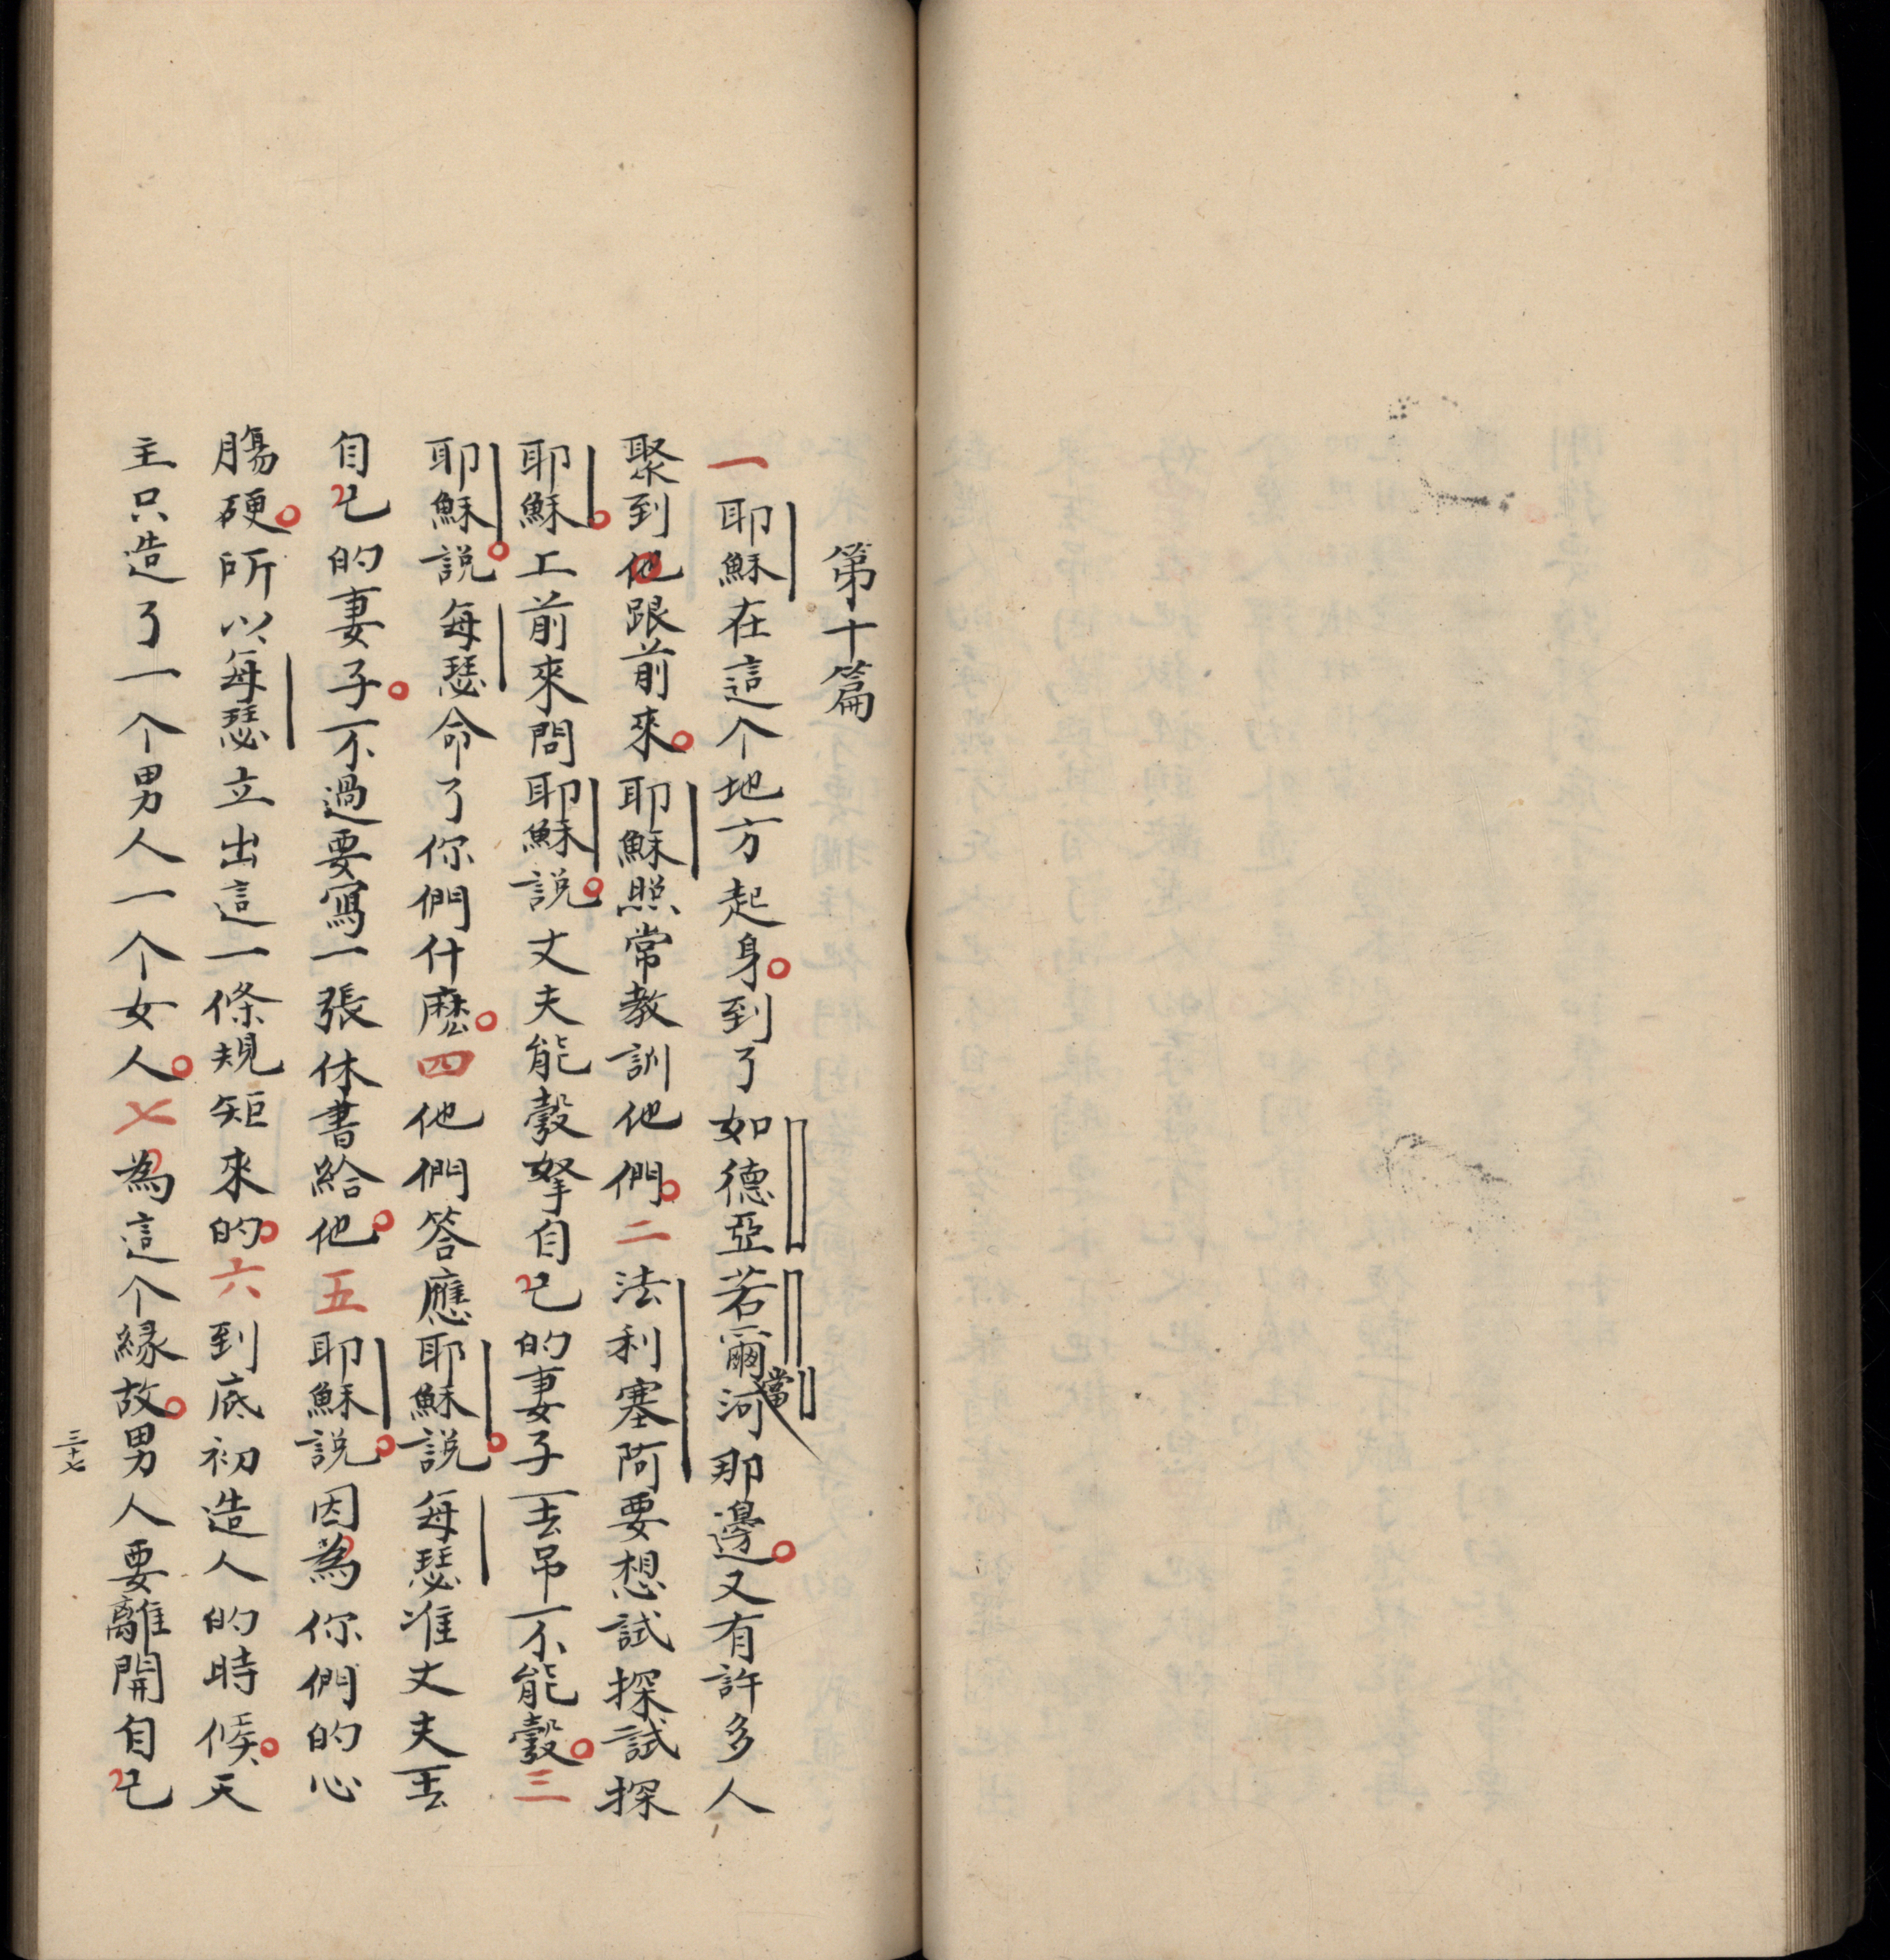 第十篇
一耶穌在這个地方起身到了如德亞若爾當河那邊又有許多人
聚到他跟前來耶穌照常教訓他們二法利塞阿要想試探試探
耶穌工前來問耶穌說丈夫能彀拏自己的妻子丟吊不能彀三
耶穌說每瑟命了你們什麽四他們答應耶穌說每瑟准丈夫丟
自己的妻子不過要寫一張休書給他五耶穌說因為你們的心
腸硬所以每瑟立出這一條規矩來的六到底初造人的時候天
主只造了一个男人一个女人七為這个縁故男人要離開自己
三十七